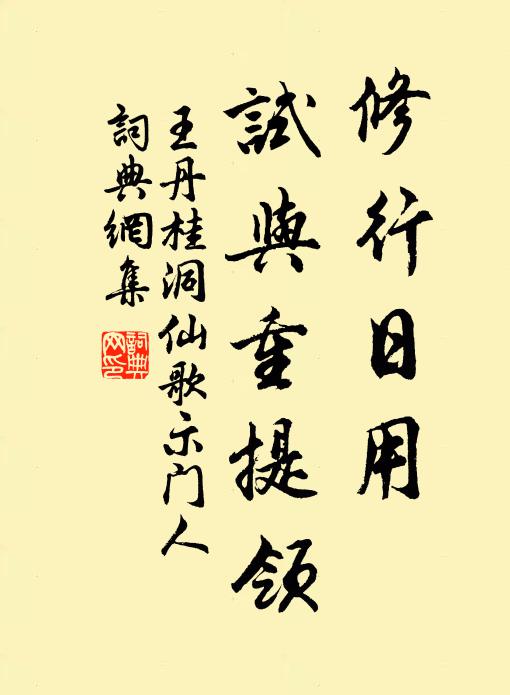 修行日用
試與重提領
王丹桂洞仙歌示门人
詞典網集
詞典网印